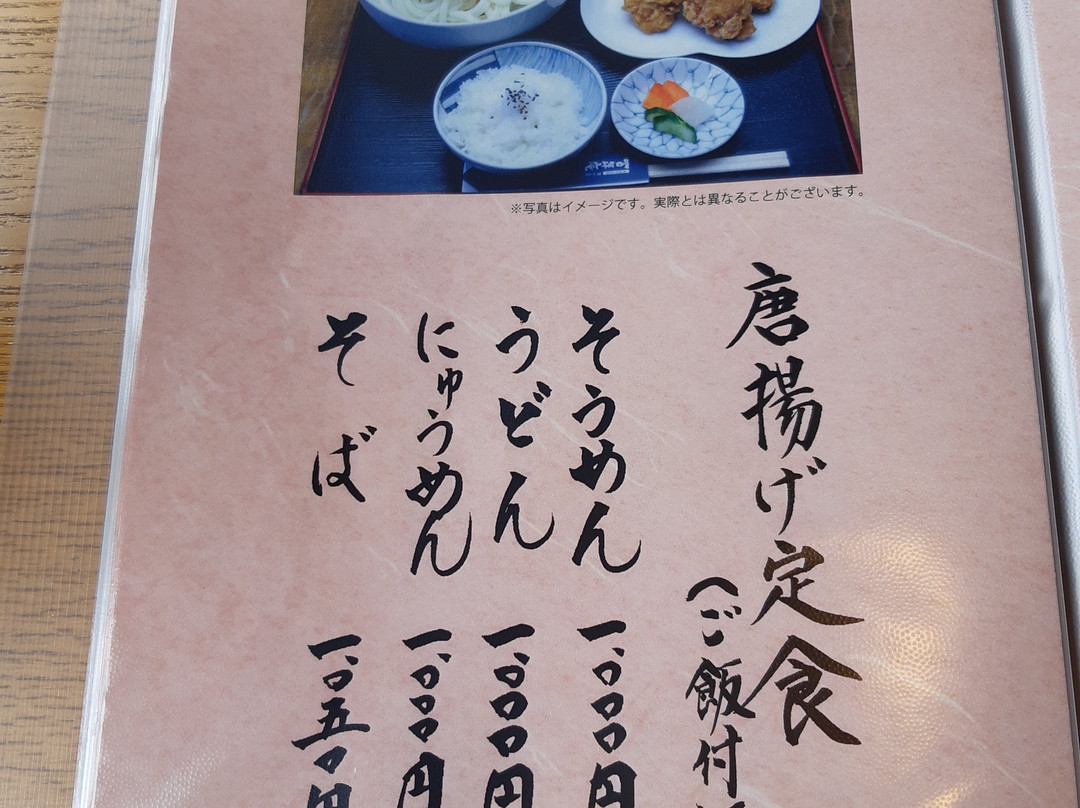 ※写真はイメージです。実際とは異なることがございます。
唐揚げ定食
(ご飯付
そうめん 一、〇〇〇円
うどん 一、〇〇〇円
にゅうめん 一、〇〇〇円
そば 一、〇五〇円